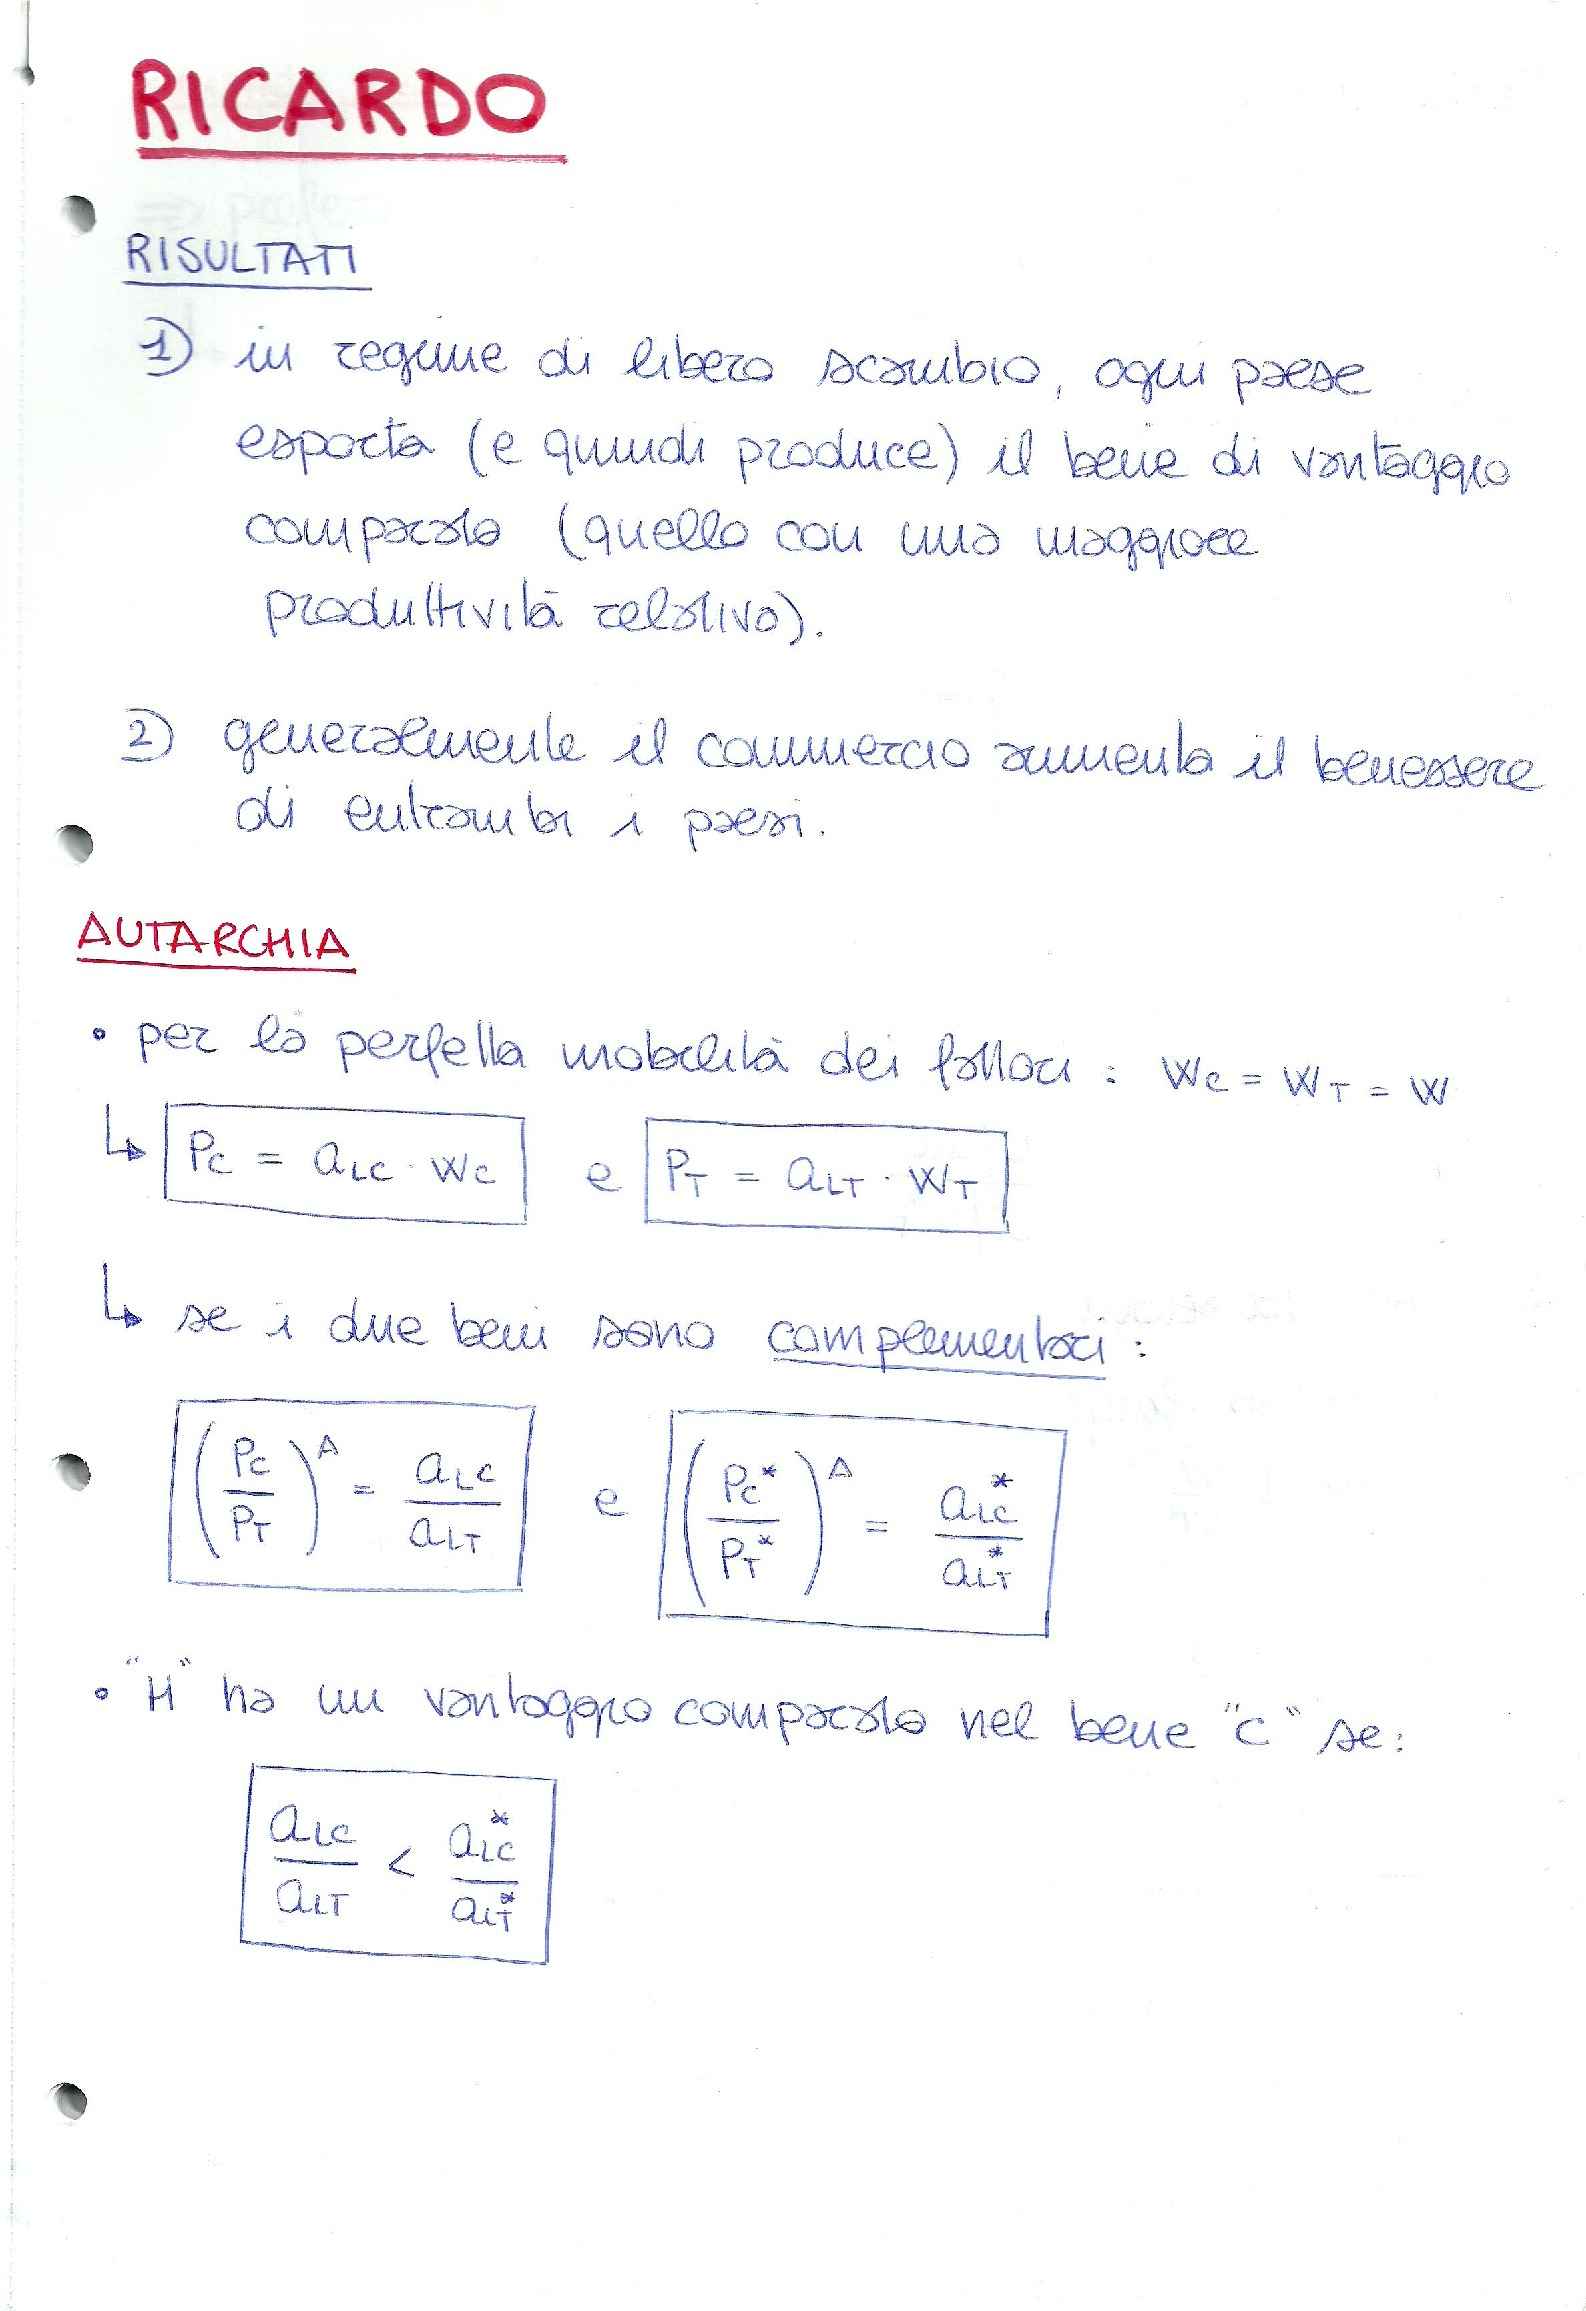 RICARDO
RISULTATI
1) in regime di libero scambio, ogni paese
esporta (e quindi produce) il bene di vantaggio
comparato (quello con una maggiore
produttività relativa).
2) generalmente il commercio aumenta il benessere
di entrambi i paesi.
AUTARCHIA
• per la perfetta mobilità dei fattori : w_C = w_T = w
↳ P_C = a_LC · w_C e P_T = a_LT · w_T
↳ se i due beni sono complementari :
(P_C / P_T)^A = a_LC / a_LT e (P_C* / P_T*)^A = a_LC* / a_LT*
• "H" ha un vantaggio comparato nel bene "C" se:
a_LC / a_LT < a_LC* / a_LT*